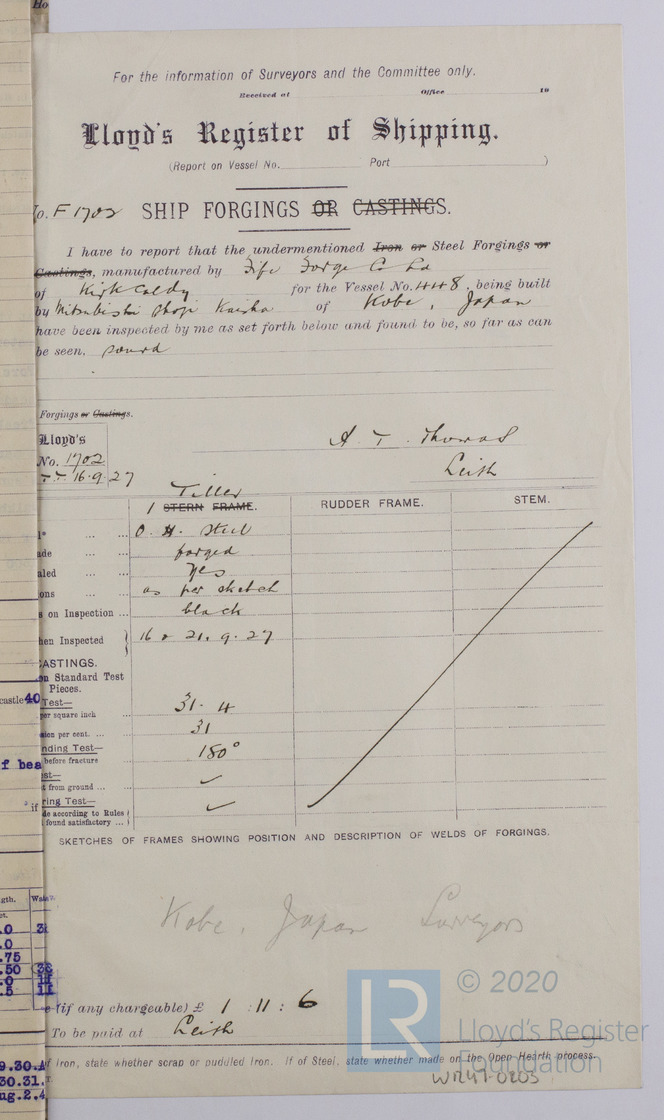 For the information of Surveyors and the Committee only.
Received at Office 19
Lloyd's Register of Shipping.
(Report on Vessel No. Port )
o. F 1702 SHIP FORGINGS OR CASTINGS.
I have to report that the undermentioned Iron or Steel Forgings or
Castings, manufactured by Fife Forge Co Ld
of Kirkcaldy for the Vessel No. 448, being built
by Mitsubishi Zosen Kaisha of Kobe, Japan
have been inspected by me as set forth below and found to be, so far as can
be seen, sound
Forgings or Castings.
Lloyd's
No. 1702
16.9.27
A. T. Thomas
Leith
Tiller
1 STERN FRAME. RUDDER FRAME. STEM.
O.H. Steel
ade forged
aled Yes
ons as per sketch
s on Inspection ... black
hen Inspected 16 & 21.9.27
ASTINGS.
on Standard Test
Pieces.
Test— 31.4
per square inch
sion per cent. ... 31
nding Test— 180°
before fracture
st— ✓
t from ground ...
ring Test— ✓
de according to Rules
found satisfactory ...
SKETCHES OF FRAMES SHOWING POSITION AND DESCRIPTION OF WELDS OF FORGINGS.
Kobe, Japan Surveyors
e (if any chargeable) £ 1 : 11 : 6
To be paid at Leith
f Iron, state whether scrap or puddled Iron. If of Steel, state whether made on the Open Hearth process.
W1247-0205
LR
© 2020
Lloyd's Register
Foundation
castle 40
f bea
if
gth.
.0
.0
.75
.50
.0
.5
9.30.
30.31.
ug.2.4